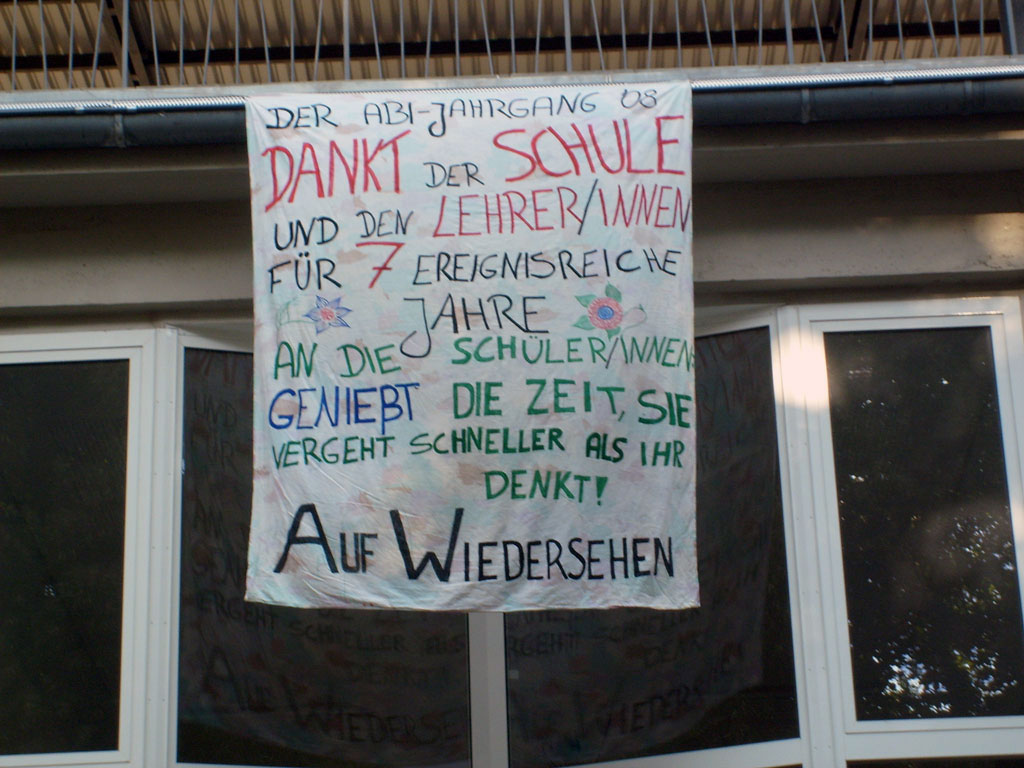 DER ABI-JAHRGANG '08
DANKT DER SCHULE
UND DEN LEHRER/INNEN
FÜR 7 EREIGNISREICHE
JAHRE
AN DIE SCHÜLER/INNEN:
GENIEßT DIE ZEIT, SIE
VERGEHT SCHNELLER ALS IHR
DENKT!
AUF WIEDERSEHEN